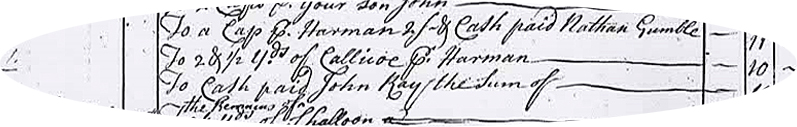 your son John
To a Cap p. Harman 2/- & Cash paid Nathan Gumble — 11
To 2 & 1/2 Yds of Callicoe p. Harman — 10
To Cash paid John Kay the Sum of —
the Remains of a
Yds of Shalloon a